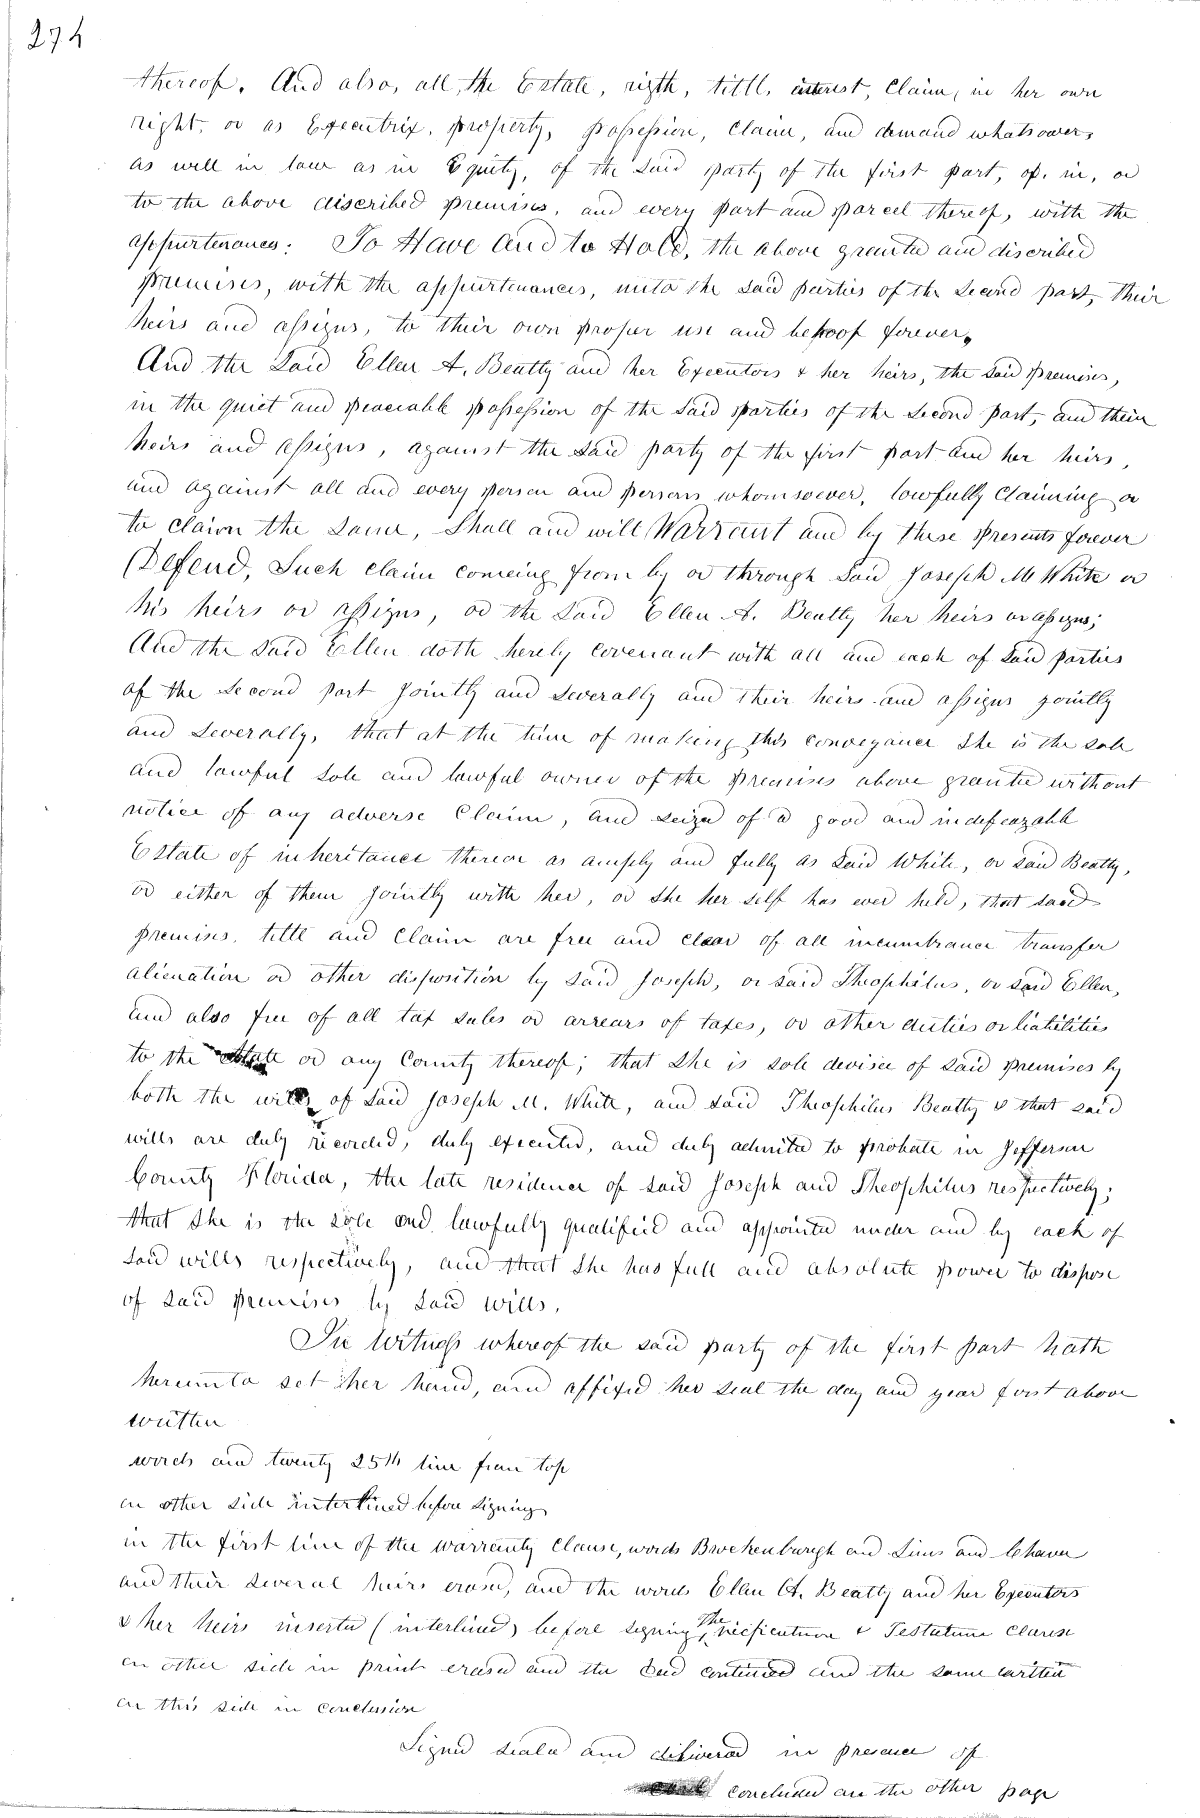 274
thereof. And also, all, the Estate, rigth, titll, interest, Claim, in her own
right, or as Executrix, property, possession, Claim, and demand whatsoever,
as well in law as in Equity, of the said party of the first part, of, in, or
to the above discribed premises, and every part and parcel thereof, with the
appurtenances: To Have and to Hold, the above granted and discribed
premises, with the appurtenances, unto the said parties of the second part, their
heirs and assigns, to their own proper use and behoof forever.
And the Said Ellen A. Beatty and her Executors & her heirs, the said premises,
in the quiet and peaceable possession of the said parties of the second part, and their
heirs and assigns, against the said party of the first part and her heirs,
and against all and every person and persons whomsoever, lowfully Claiming or
to claim the Same, Shall and will Warrant and by these presents forever
Defend, Such claim comeing from by or through said Joseph M White or
his heirs or assigns, or the Said Ellen A. Beatty her heirs or assigns;
And the said Ellen doth hereby covenant with all and each of said parties
of the second part jointly and severally and their heirs and assigns jointly
and severally, that at the time of making this conveyance she is the sole
and lawful sole and lawful owner of the premises above granted without
notice of any adverse Claim, and seized of a good and indefeazable
Estate of inheritance thereon as amply and fully as said White, or said Beatty,
or either of them jointly with her, or she her self has ever held, that said
premises, titll and claim are free and clear of all incumbrance transfer
alienation or other disposition by said Joseph, or said Theophilus, or said Ellen,
and also free of all tax sales or arrears of taxes, or other duties or liabilities
to the State or any County thereof; that she is sole devisee of said premises by
both the wills of said Joseph M. White, and said Theophilus Beatty & that said
wills are duly recorded, duly executed, and duly admited to probate in Jefferson
County Florida, the late residence of said Joseph and Theophilus respectively;
that she is the sole and lawfully qualified and appointed under and by each of
said wills respectively, and that she has full and absolute power to dispose
of said premises by said wills.
In Witness whereof the said party of the first part hath
hereunto set her hand, and affixed her seal the day and year first above
written
words and twenty 25th line from top
on other side interlined before signing
in the first line of the warranty clause, words Brockenburgh and Sims and Chaver
and their several heirs erased, and the words Ellen A. Beatty and her Executors
& her heirs inserted (interlined) before signing, The & Testatum clause
on other side in print erased and the Deed continued and the same written
on this side in conclusion
Signed sealed and delivered in presence of
concluded on the other page